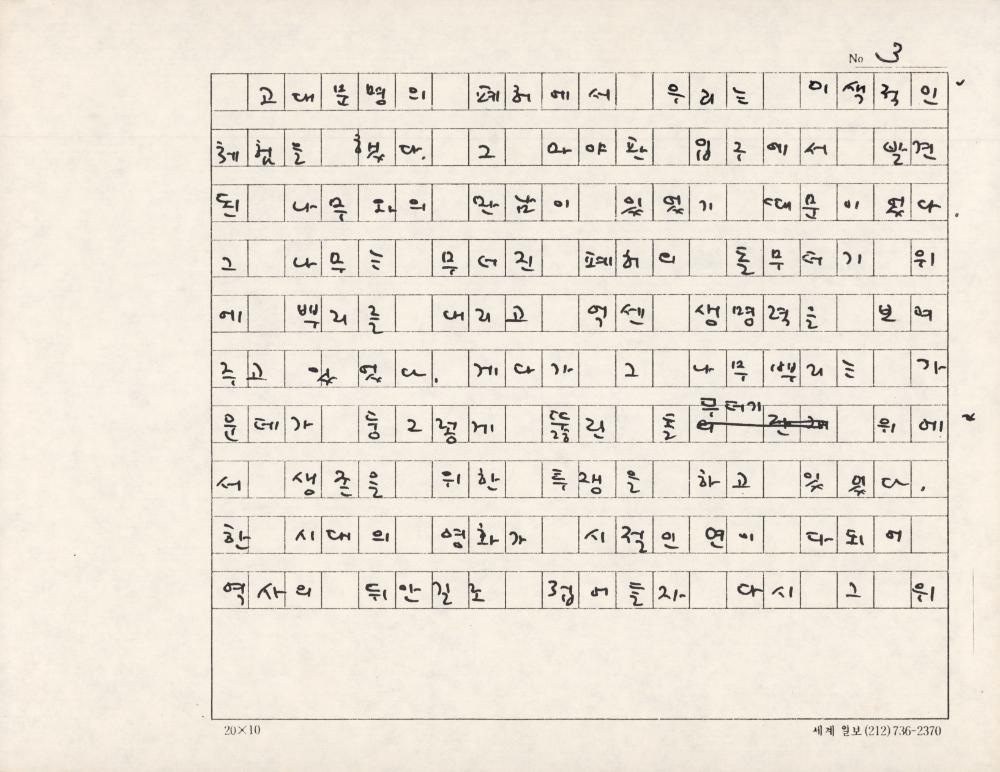 No 3
고대문명의 폐허에서 우리는 이색적인
체험을 했다. 그 마야관 입구에서 발견
된 나무와의 만남이 있었기 때문이었다.
그 나무는 무너진 폐허의 돌무더기 위
에 뿌리를 내리고 억센 생명력을 보여
주고 있었다. 게다가 그 나무뿌리는 가
운데가 둥그렇게 뚫린 돌무더기 위에
서 생존을 위한 투쟁을 하고 있었다.
한 시대의 영화가 시절인연이 다되어
역사의 뒤안길로 접어들자 다시 그 위
20×10
세계일보 (212) 736-2370